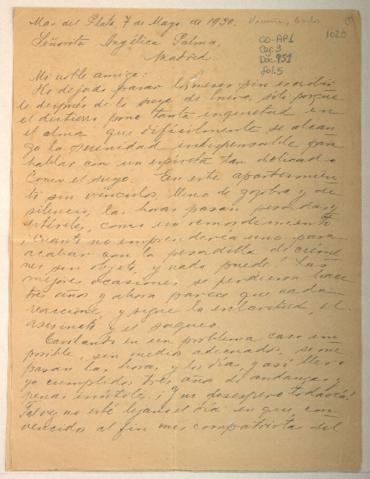 Mar del Plata, 7 de Mayo de 1930.
1020
Señorita Angélica Palma,
Madrid.
CO-AP1
Caj. 3
Doc. 951
fol. 5
Mi noble amiga:
He dejado pasar los meses sin escribir
le después de la suya de Enero, sólo porque
el destierro pone tanta inquietud en
el alma que difícilmente se alcan
za la serenidad indispensable para
hablar con un espíritu tan delicado
como el suyo. En este apartamien
to sin vínculos, lleno de zozobra y de
silencio, las horas pasan pesadas y
estériles, como un remordimiento.
¡Cuánto no emprendería uno para
acabar con la pesadilla de crímenes
sin objeto, y nada puede! Las
mejores ocasiones se perdieron hace
tres años y ahora parece que nada
reacciona, y sigue la esclavitud, el
asesinato y el saqueo.
en un problema casi im
posible, sin medios adecuados, se me
pasan las horas, y los días, y así llevo
ya cumplidos tres años de andanzas y
penas inútiles. ¡Y no desespero todavía!
Tal vez no esté lejano el día en que, con
vencidos al fin mis compatriotas del